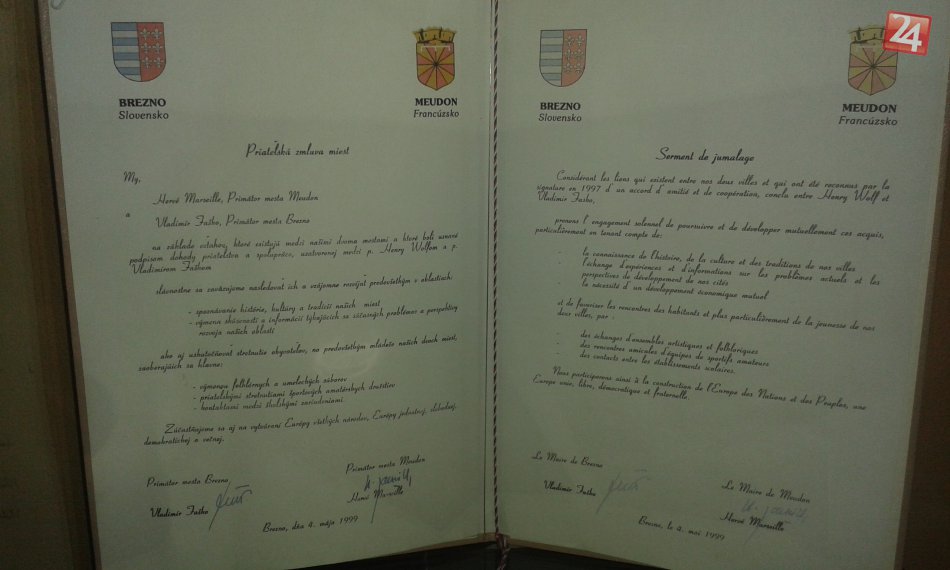 BREZNO
Slovensko
MEUDON
Francúzsko
Priateľská zmluva miest
My,
Hervé Marseille, Primátor mesta Meudon
a
Vladimír Faško, Primátor mesta Brezno
na základe vzťahov, ktoré existujú medzi našimi dvoma mestami a ktoré boli uznané
podpisom dohody priateľstva a spolupráce, uzatvorenej medzi p. Henry Wolfom a p.
Vladimírom Faškom
slávnostne sa zaväzujeme nasledovať ich a vzájomne rozvíjať predovšetkým v oblastiach:
- spoznávanie histórie, kultúry a tradícií našich miest
- výmena skúseností a informácií týkajúcich sa súčasných problémov a perspektív
rozvoja našich oblastí
ako aj uskutočňovať stretnutie obyvateľov, no predovšetkým mládeže našich dvoch miest,
zaoberajúcich sa hlavne:
- výmenou folklórnych a umeleckých súborov
- priateľskými stretnutiami športových amatérskych družstiev
- kontaktami medzi školskými zariadeniami.
Zúčastňujeme sa aj na vytváraní Európy všetkých národov, Európy jednotnej, slobodnej,
demokratickej a voľnej.
Primátor mesta Brezno,
Primátor mesta Meudon
Vladimír Faško
Hervé Marseille
Brezno, dňa 4. mája 1999
24
BREZNO
Slovensko
MEUDON
Francúzsko
Serment de jumalage
Considérant les liens qui existent entre nos deux villes et qui ont été reconnus par la
signature en 1997 d' un accord d' amitié et de coopération, conclu entre Henry Wolf et
Vladimír Faško,
prenons l' engagement solennel de poursuivre et de développer mutuellement cas acquis,
particulièrement en tenant compte de:
- la connaissance de l'histoire, de la culture et des traditions de nos villes
- l'échange d'expériences et d'informations sur les problèmes actuels et les
perspectives de développement de nos cités
- la nécessité d' un développement économique mutuel
et de favoriser les rencontres des habitants et plus particulièrement de la jeunesse de nos
deux villes, par :
- des échanges d'ensembles artistiques et folkloriques
- des rencontres amicales d'équipes de sportifs amateurs
- des contacts entre les établissements scolaires.
Nous participerons ainsi à la construction de l'Europe des Nations et des Peuples, une
Europe unie, libre, démocratique et fraternelle.
Le Maire de Brezno
Le Maire de Meudon
Vladimír Faško
Hervé Marseille
Brezno, le 4. mai 1999